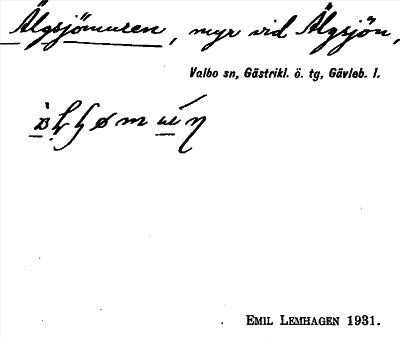 Älgsjömuren, myr vid Älgsjön,
Valbo sn, Gästrikl. ö. tg, Gävleb. l.
EMIL LEMHAGEN 1931.